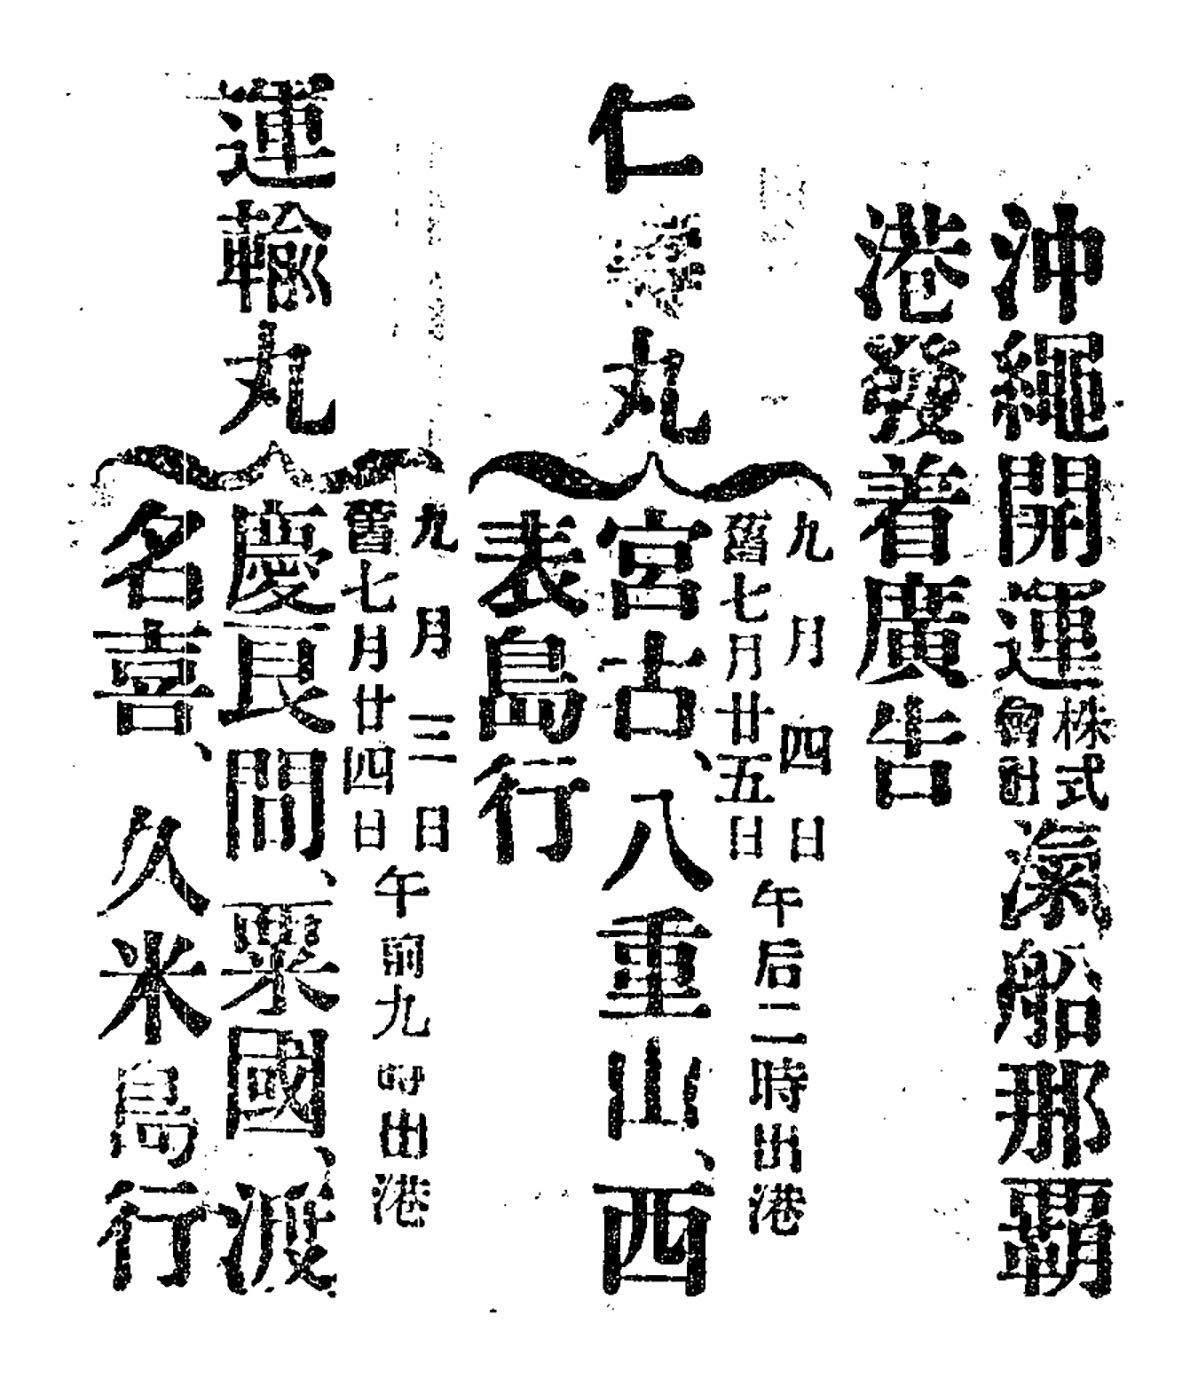 沖繩開運株式會社滊船那覇
港發着廣告
仁 丸
九月四日
舊七月廿五日
午后二時出港
宮古、八重山、西
表島行
運輸丸
九月三日
舊七月廿四日
午前九時出港
慶良間、粟國、渡
名喜、久米島行